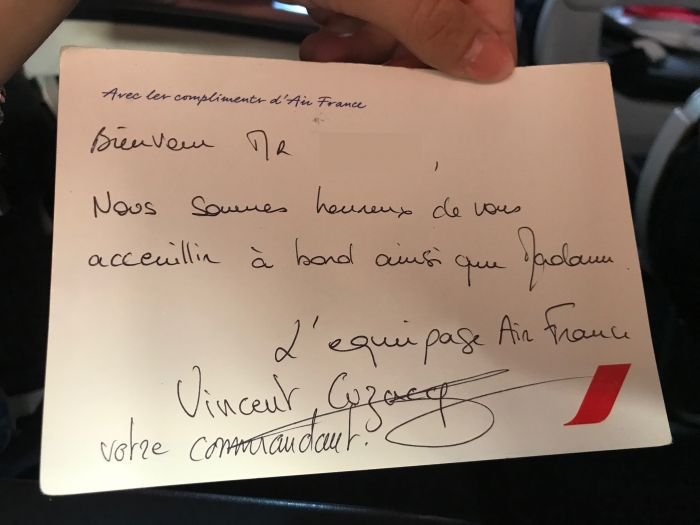 Avec les compliments d'Air France
Bienvenu MR ,
Nous sommes heureux de vous
acceuillir à bord ainsi que Madame
L'equipage Air France
Vincent
votre commandant.